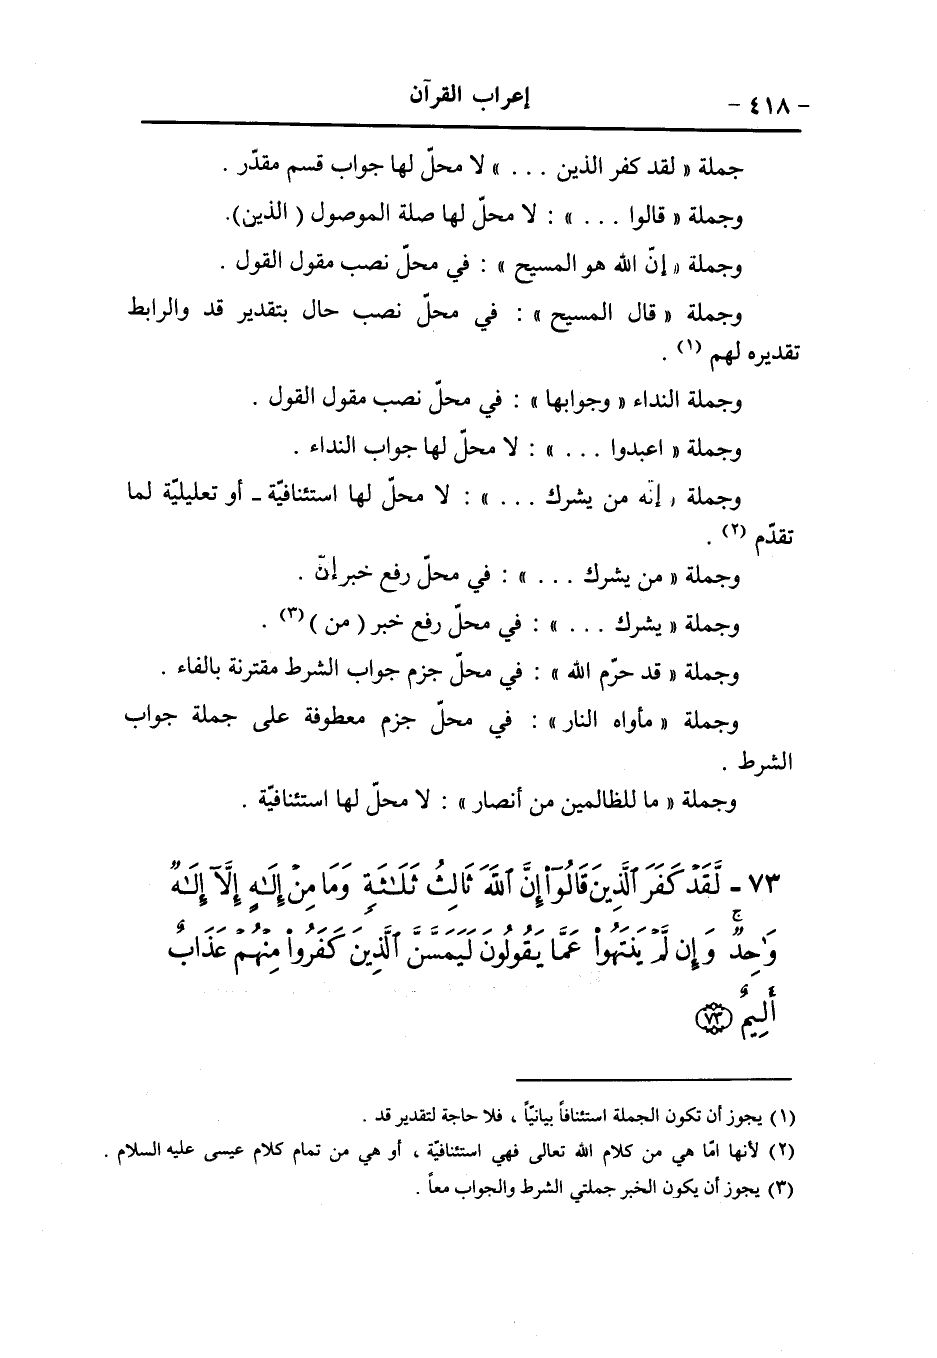 - ٤١٨ - إعراب القرآن
جملة « لقد كفر الذين . . . » لا محلّ لها جواب قسم مقدّر .
وجملة « قالوا . . . » : لا محلّ لها صلة الموصول ( الذين).
وجملة « إنّ الله هو المسيح » : في محلّ نصب مقول القول .
وجملة « قال المسيح » : في محلّ نصب حال بتقدير قد والرابط
تقديره لهم (١) .
وجملة النداء « وجوابها » : في محلّ نصب مقول القول .
وجملة « اعبدوا . . . » : لا محلّ لها جواب النداء .
وجملة « إنّه من يشرك . . . » : لا محلّ لها استئنافيّة ـ أو تعليليّة لما
تقدّم (٢) .
وجملة « من يشرك . . . » : في محلّ رفع خبر إنّ .
وجملة « يشرك . . . » : في محلّ رفع خبر ( من )(٣) .
وجملة « قد حرّم الله » : في محلّ جزم جواب الشرط مقترنة بالفاء .
وجملة « مأواه النار » : في محلّ جزم معطوفة على جملة جواب
الشرط .
وجملة « ما للظالمين من أنصار » : لا محلّ لها استئنافيّة .
٧٣ - لَّقَدْ كَفَرَ ٱلَّذِينَ قَالُوٓا۟ إِنَّ ٱللَّهَ ثَالِثُ ثَلَـٰثَةٍ وَمَا مِنْ إِلَـٰهٍ إِلَّآ إِلَـٰهٌ
وَٰحِدٌ ۚ وَإِن لَّمْ يَنتَهُوا۟ عَمَّا يَقُولُونَ لَيَمَسَّنَّ ٱلَّذِينَ كَفَرُوا۟ مِنْهُمْ عَذَابٌ
أَلِيمٌ ﴿٧٣﴾
(١) يجوز أن تكون الجملة استئنافاً بيانيّاً ، فلا حاجة لتقدير قد .
(٢) لأنها امّا هي من كلام الله تعالى فهي استئنافيّة ، أو هي من تمام كلام عيسى عليه السلام .
(٣) يجوز أن يكون الخبر جملتي الشرط والجواب معاً .